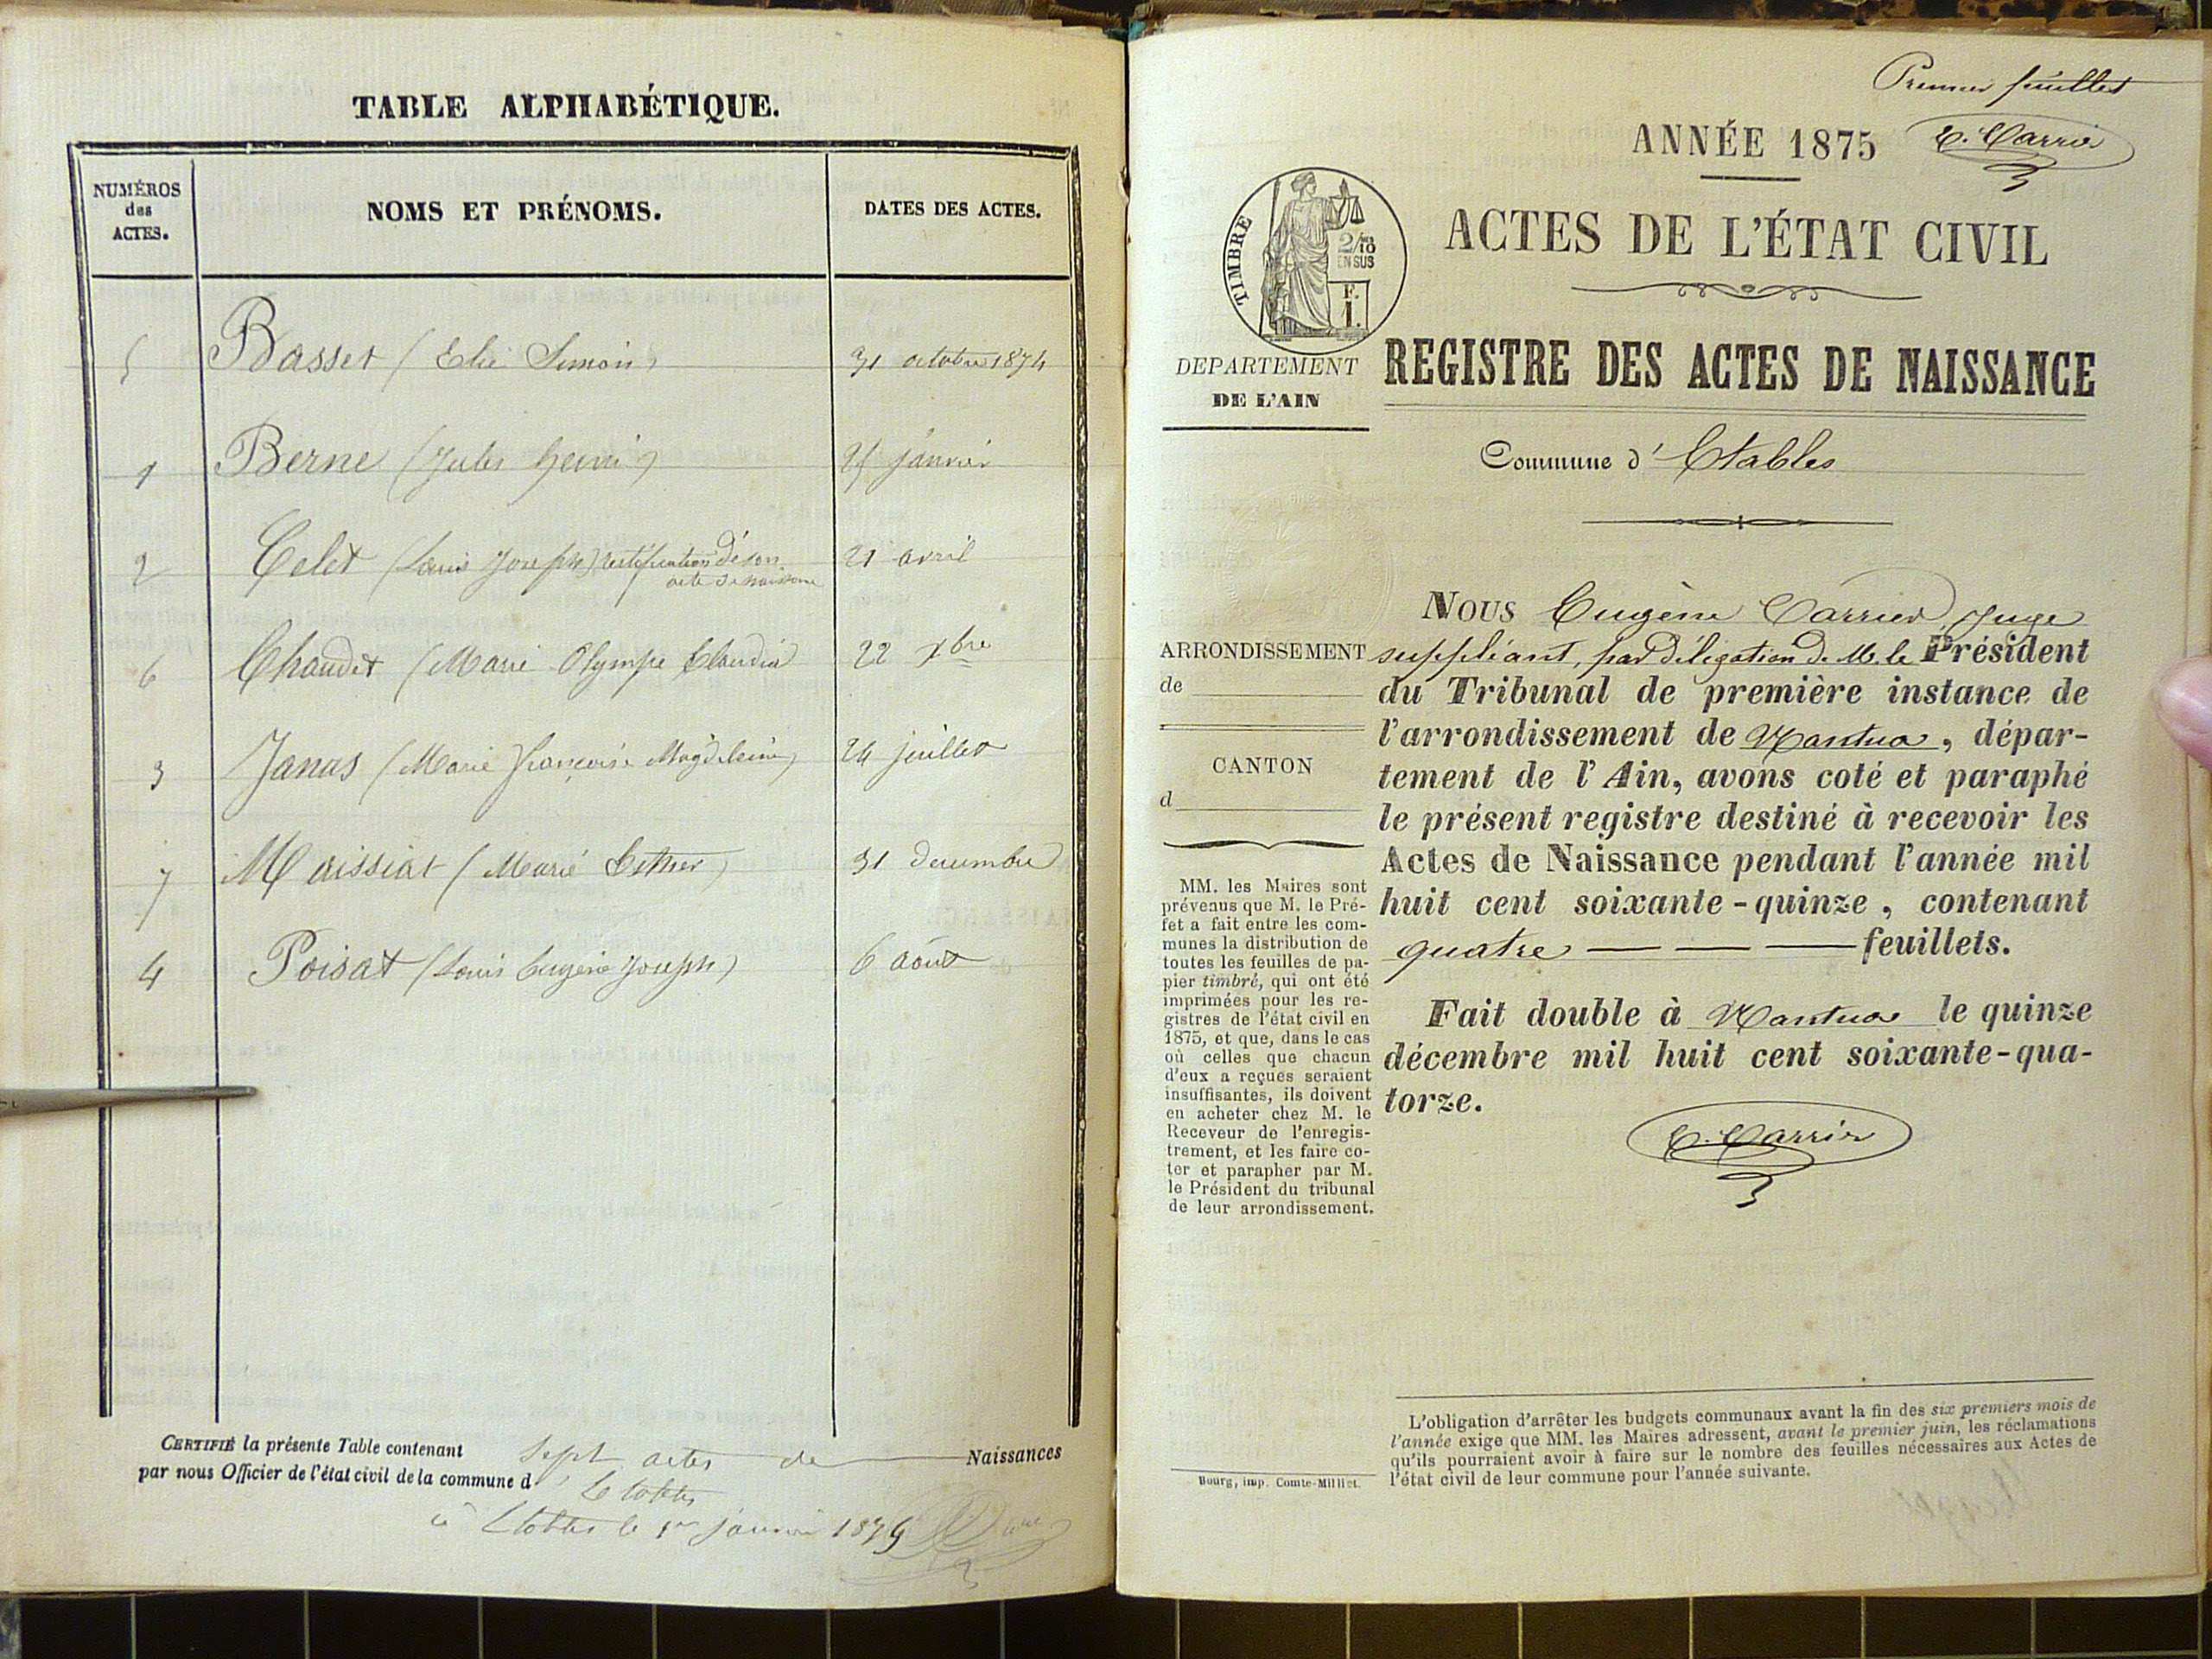 TABLE ALPHABÉTIQUE.
NUMÉROS
des
ACTES.
NOMS ET PRÉNOMS.
DATES DES ACTES.
5 Basset (Elie Simon) 31 octobre 1874
1 Berne (Jules henri) 25 janvier
2 Celet (Louis Joseph) rectification de son
acte de naissance 21 avril
6 Chaudet (Marie Olympe Claudia) 22 xbre
3 Janus (Marie françoise Magdeleine) 24 juillet
7 Maissiat (Marie Esther) 31 decembre
4 Poisat (Louis Eugène Joseph) 6 août
CERTIFIÉ la présente Table contenant sept actes de Naissances
par nous Officier de l'état civil de la commune d'Etables
à Etables le 1er janvier 1875
Premier feuillet
ANNÉE 1875
E. Carrier
TIMBRE
2/10
EN SUS
F.
1.
ACTES DE L'ÉTAT CIVIL
DEPARTEMENT
DE L'AIN
REGISTRE DES ACTES DE NAISSANCE
Commune d'Etables
ARRONDISSEMENT
de
CANTON
d
MM. les Maires sont
prévenus que M. le Pré-
fet a fait entre les com-
munes la distribution de
toutes les feuilles de pa-
pier timbré, qui ont été
imprimées pour les re-
gistres de l'état civil en
1875, et que, dans le cas
où celles que chacun
d'eux a reçues seraient
insuffisantes, ils doivent
en acheter chez M. le
Receveur de l'enregis-
trement, et les faire co-
ter et parapher par M.
le Président du tribunal
de leur arrondissement.
Bourg, imp. Comte-Milliet.
NOUS Eugène Carrier, Juge
suppléant, par délégation de M. le Président
du Tribunal de première instance de
l'arrondissement de Nantua, dépar-
tement de l'Ain, avons coté et paraphé
le présent registre destiné à recevoir les
Actes de Naissance pendant l'année mil
huit cent soixante-quinze, contenant
quatre feuillets.
Fait double à Nantua le quinze
décembre mil huit cent soixante-qua-
torze.
E. Carrier
L'obligation d'arrêter les budgets communaux avant la fin des six premiers mois de
l'année exige que MM. les Maires adressent, avant le premier juin, les réclamations
qu'ils pourraient avoir à faire sur le nombre des feuilles nécessaires aux Actes de
l'état civil de leur commune pour l'année suivante.